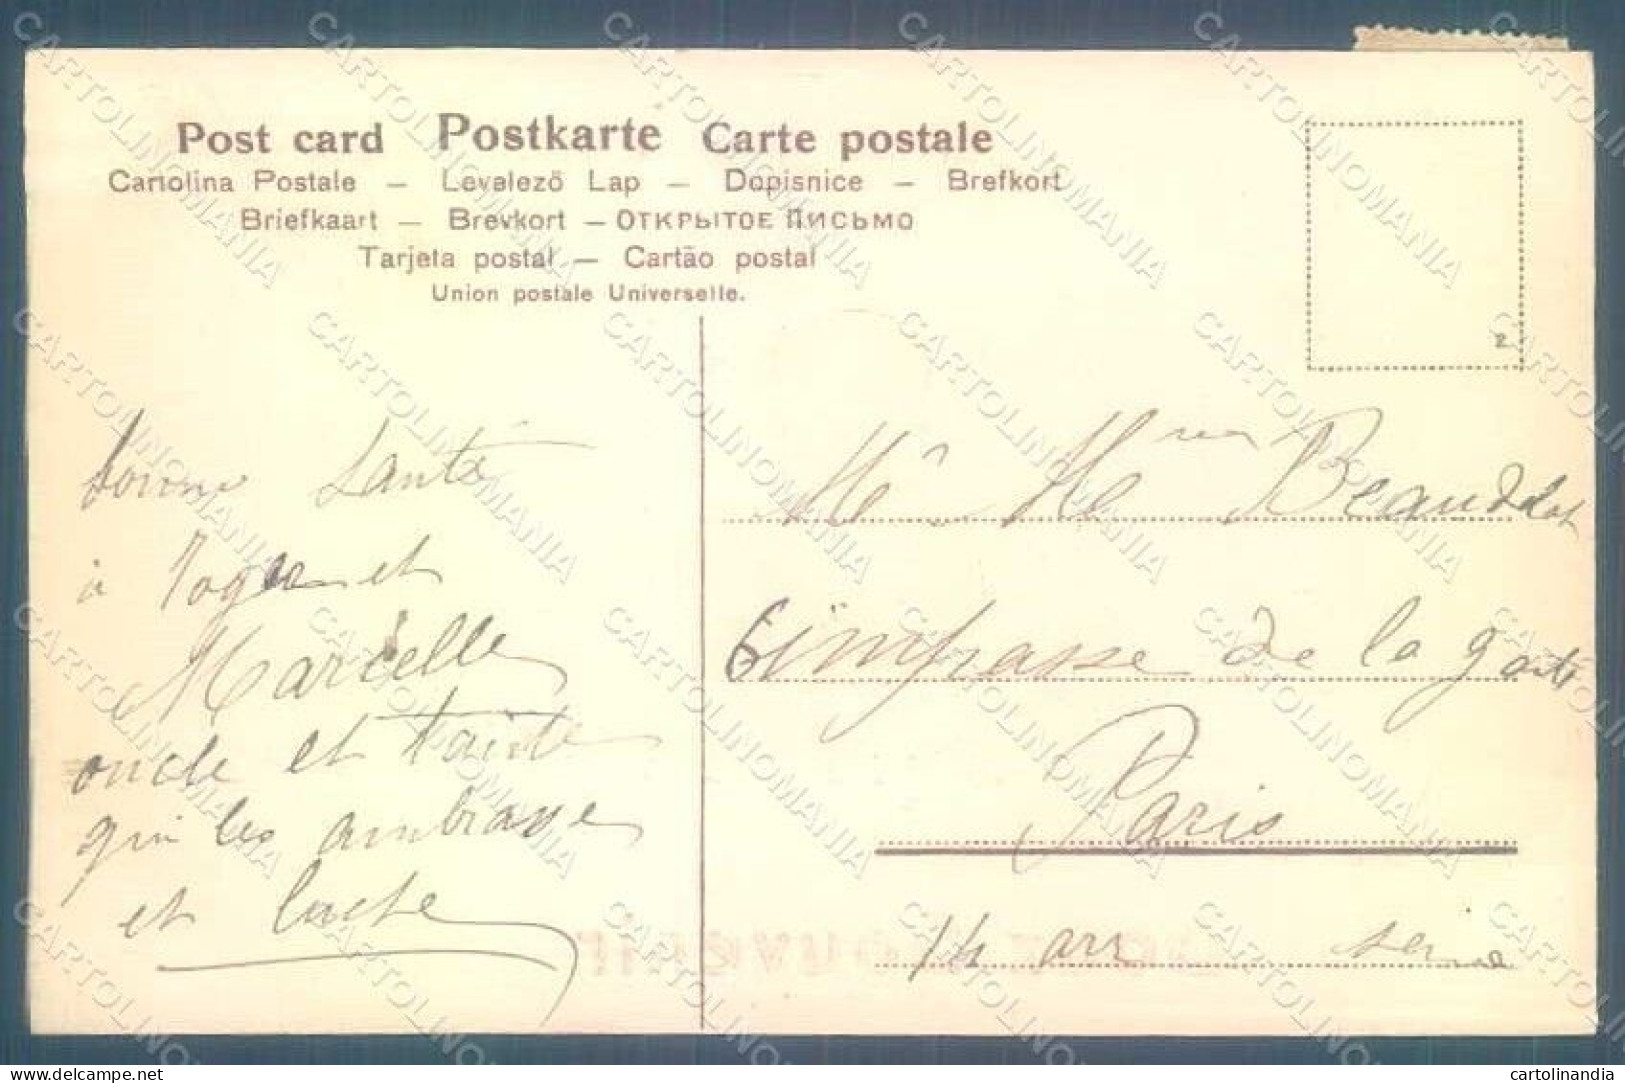 Post card Postkarte Carte postale
Cartolina Postale — Levelező Lap — Dopisnice — Brefkort
Briefkaart — Brevkort — ОТКРЫТОЕ ПИСЬМО
Tarjeta postal — Cartão postal
Union postale Universelle.
2
bonne Santé
à Roger et
Marcelle
oncle et tante
qui les ambrasse
et
Mr Mme
6 impasse de la gaité
Paris
14 arr seine
delcampe.net
cartolinandia
CARTOLINOMANIA